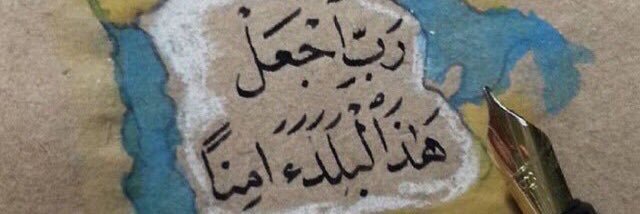 رَبِّ اَجْعَلْ
هَٰذَا ٱلْبَلَدَ ءَامِنًا